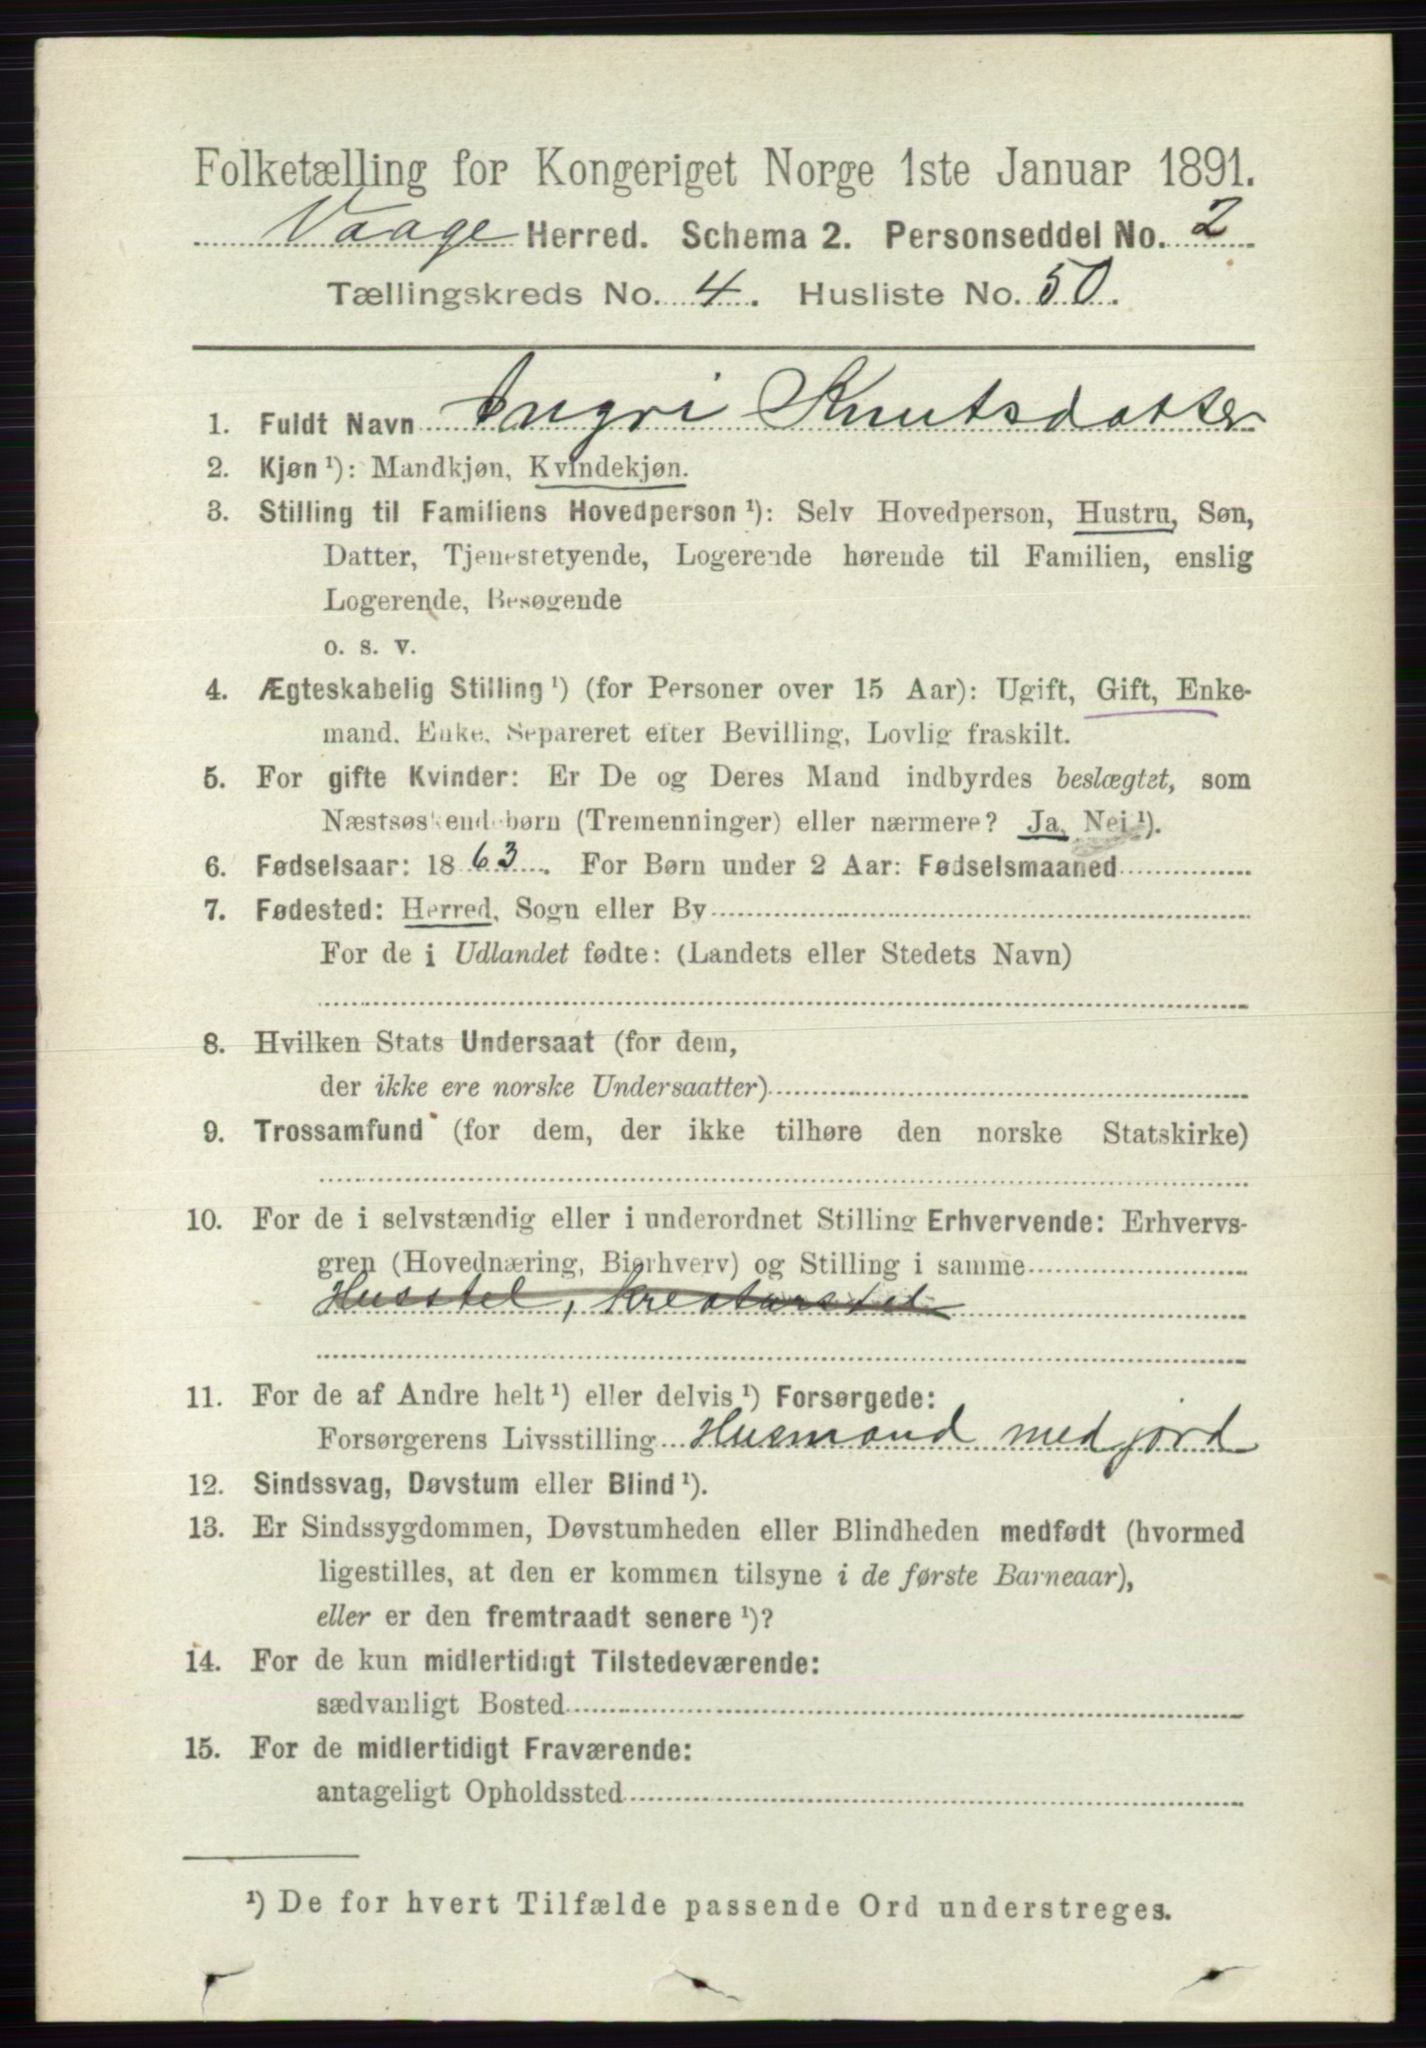 Folketælling for Kongeriget Norge 1ste Januar 1891.
Vaage Herred. Schema 2. Personseddel No. 2
Tællingskreds No. 4. Husliste No. 50.
1. Fuldt Navn Ingri Knutsdatter
2. Kjøn ¹): Mandkjøn, Kvindekjøn.
3. Stilling til Familiens Hovedperson ¹): Selv Hovedperson, Hustru, Søn,
Datter, Tjenestetyende, Logerende hørende til Familien, enslig
Logerende, Besøgende
o. s. v.
4. Ægteskabelig Stilling ¹) (for Personer over 15 Aar): Ugift, Gift, Enke-
mand, Enke, Separeret efter Bevilling, Lovlig fraskilt.
5. For gifte Kvinder: Er De og Deres Mand indbyrdes beslægtet, som
Næstsøskendebørn (Tremenninger) eller nærmere? Ja, Nei ¹).
6. Fødselsaar: 1863. For Børn under 2 Aar: Fødselsmaaned
7. Fødested: Herred, Sogn eller By
For de i Udlandet fødte: (Landets eller Stedets Navn)
8. Hvilken Stats Undersaat (for dem,
der ikke ere norske Undersaatter)
9. Trossamfund (for dem, der ikke tilhøre den norske Statskirke)
10. For de i selvstændig eller i underordnet Stilling Erhvervende: Erhvervs-
gren (Hovednæring, Bierhverv) og Stilling i samme
Husstel, Kreaturstel
11. For de af Andre helt ¹) eller delvis ¹) Forsørgede:
Forsørgerens Livsstilling Husmand med jord
12. Sindssvag, Døvstum eller Blind ¹).
13. Er Sindssygdommen, Døvstumheden eller Blindheden medfødt (hvormed
ligestilles, at den er kommen tilsyne i de første Barneaar),
eller er den fremtraadt senere ¹)?
14. For de kun midlertidigt Tilstedeværende:
sædvanligt Bosted
15. For de midlertidigt Fraværende:
antageligt Opholdssted
¹) De for hvert Tilfælde passende Ord understreges.